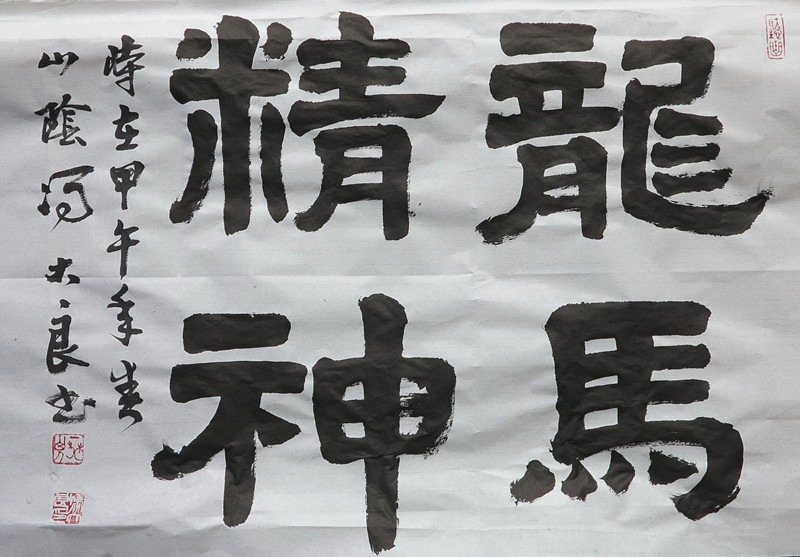 龍馬
精神
時在甲午年春
山陰馮大良书